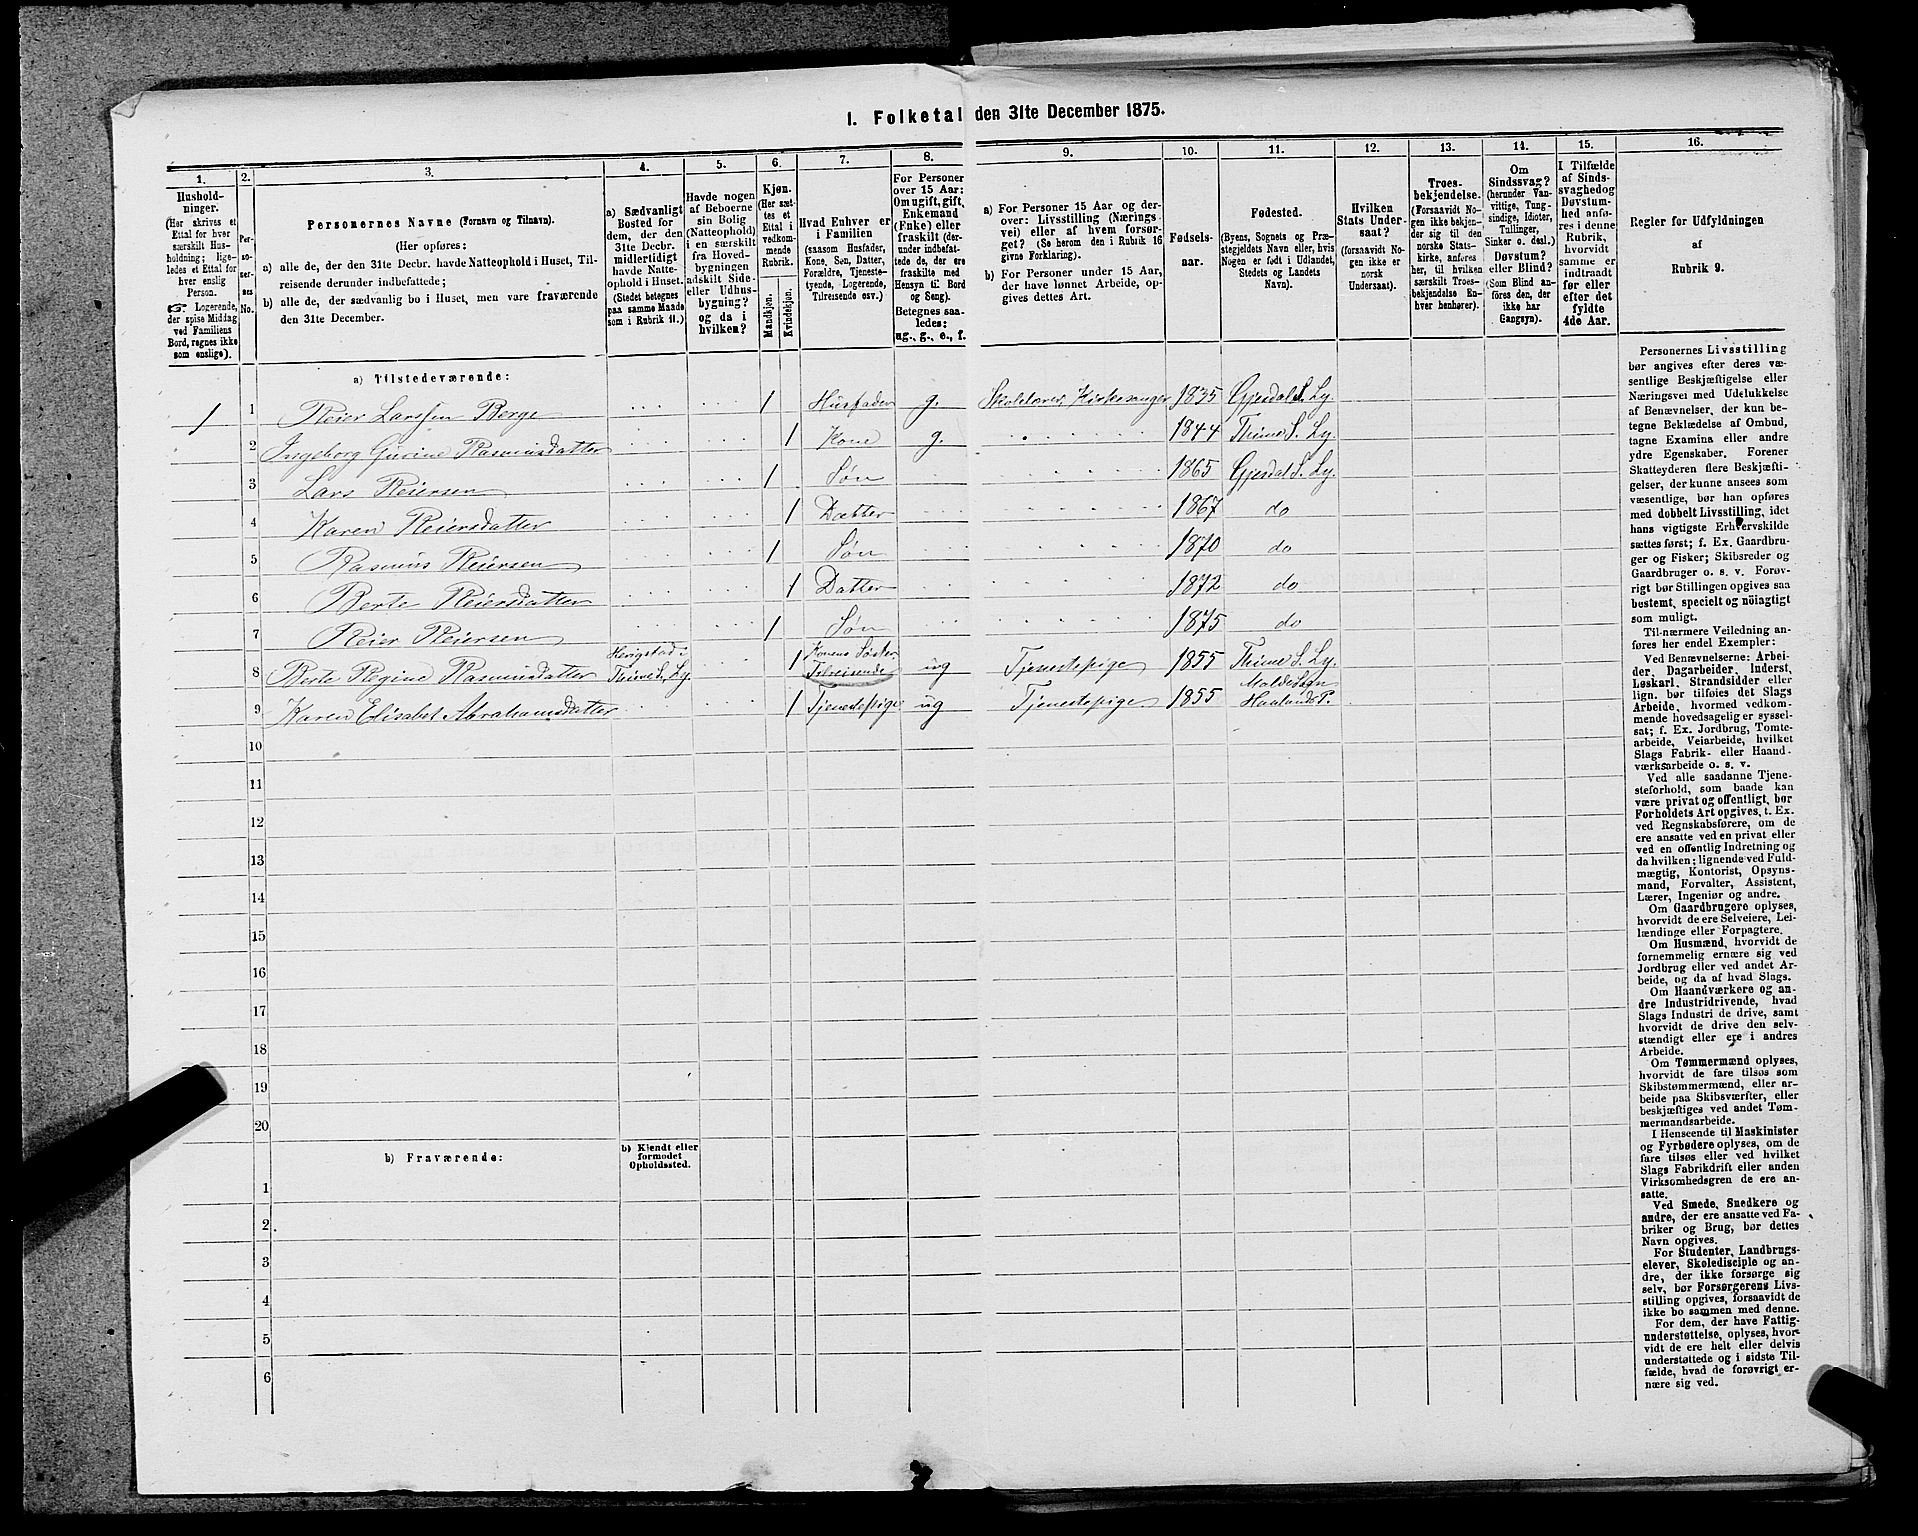 I. Folketal den 31te December 1875.
1. 2. 3. 4. 5. 6. 7. 8. 9. 10. 11. 12. 13. 14. 15. 16.
Hushold-
ninger.
(Her skrives et
Ettal for hver
særskilt Hus-
holdning; lige-
ledes et Ettal for
hver enslig
Person.
Logerende,
der spise Middag
ved Familiens
Bord, regnes ikke
som enslige).
Per-
so-
ner-
nes
No.
Personernes Navne (Fornavn og Tilnavn).
(Her opføres:
a) alle de, der den 31te Decbr. havde Natteophold i Huset, Til-
reisende derunder indbefattede;
b) alle de, der sædvanlig bo i Huset, men vare fraværende
den 31te December.
a) Sædvanligt
Bosted for
dem, der den
31te Decbr.
midlertidigt
havde Natte-
ophold i Huset.
(Stedet betegnes
paa samme Maade
som i Rubrik 11.)
Havde nogen
af Beboerne
sin Bolig
(Natteophold)
i en særskilt
fra Hoved-
bygningen
adskilt Side-
eller Udhus-
bygning?
og da i
hvilken?
Kjøn.
(Her sæt-
tes et
Ettal i
vedkom-
mende
Rubrik.
Mandkjøn.
Kvindekjøn.
Hvad Enhver er
i Familien
(saasom Husfader,
Kone, Søn, Datter,
Forældre, Tjeneste-
tyende, Logerende,
Tilreisende osv.)
For Personer
over 15 Aar:
Om ugift, gift,
Enkemand
(Enke) eller
fraskilt (der-
under indbefat-
tede de, der ere
fraskilte med
Hensyn til Bord
og Seng).
Betegnes saa-
ledes:
ug., g., e., f.
a) For Personer 15 Aar og der-
over: Livsstilling (Nærings-
vei) eller af hvem forsør-
get? (Se herom den i Rubrik 16
givne Forklaring).
b) For Personer under 15 Aar,
der have lønnet Arbeide, op-
gives dettes Art.
Fødsels-
aar.
Fødested.
(Byens, Sognets og Præ-
stegjeldets Navn eller, hvis
Nogen er født i Udlandet,
Stedets og Landets
Navn).
Hvilken
Stats Under-
saat?
(forsaavidt No-
gen ikke er
norsk
Undersaat).
Troes-
bekjendelse.
(Forsaavidt No-
gen ikke bekjen-
der sig til den
norske Stats-
kirke, anføres
her, til hvilken
særskilt Troes-
bekjendelse En-
hver henhører).
Om
Sindssvag?
(herunder Van-
vittige, Tung-
sindige, Idioter,
Tullinger,
Sinker o. desl.)
Døvstum?
eller Blind?
(Som Blind an-
føres den, der
ikke har
Gangsyn).
I Tilfælde
af Sinds-
svaghed og
Døvstum-
hed anfø-
res i denne
Rubrik,
hvorvidt
samme er
indtraadt
før eller
efter det
fyldte
4de Aar.
Regler for Udfyldningen
af
Rubrik 9.
a) Tilstedeværende:
1 1 Reier Larssen Berge 1 Husfader g. Skolelærer, Kirkesanger 1835 Gjesdal S. Ly.
2 Ingeborg Gurine Rasmusdatter 1 Kone g. 1844 Thime S. Ly.
3 Lars Reiersen 1 Søn 1865 Gjesdal S. Ly.
4 Karen Reiersdatter 1 Datter 1867 do
5 Rasmus Reiersen 1 Søn 1870 do
6 Berte Reiersdatter 1 Datter 1872 do
7 Reier Reiersen 1 Søn 1875 do
8 Berte Regine Rasmusdatter Herigstad i Thime S. Ly. 1 Konens Søster, Tilreisende ug Tjenestepige 1855 Thime S. Ly.
9 Karen Elisabet Abrahamsdatter 1 Tjenestepige ug Tjenestepige 1855 Malde Sogn Haalands P.
10
11
12
13
14
15
16
17
18
19
20
b) Fraværende:
b) Kjendt eller
formodet
Opholdssted.
1
2
3
4
5
6
Personernes Livsstilling
bør angives efter deres væ-
sentlige Beskjæftigelse eller
Næringsvei med Udelukkelse
af Benævnelser, der kun be-
tegne Beklædelse af Ombud,
tagne Examina eller andre
ydre Egenskaber. Forener
Skatteyderen flere Beskjæfti-
gelser, der kunne ansees som
væsentlige, bør han opføres
med dobbelt Livsstilling, idet
hans vigtigste Erhvervskilde
sættes først; f. Ex. Gaardbru-
ger og Fisker; Skibsreder og
Gaardbruger o. s. v. Forøv-
rigt bør Stillingen opgives saa
bestemt, specielt og nöiagtigt
som muligt.
Til nærmere Veiledning an-
føres her endel Exempler:
Ved Benævnelserne: Arbei-
der, Dagarbeider, Inderst,
Løskarl, Strandsidder eller
lign. bør tilføies det Slags
Arbeide, hvormed vedkom-
mende hovedsagelig er syssel-
sat; f. Ex. Jordbrug, Tomte-
arbeide, Veiarbeide, hvilket
Slags Fabrik- eller Haand-
værksarbeide o. s. v.
Ved alle saadanne Tjene-
steforhold, som baade kan
være privat og offentligt, bør
Forholdets Art opgives, t. Ex.
ved Regnskabsførere, om de
ere ansatte ved en privat eller
ved en offentlig Indretning og
da hvilken; lignende ved Fuld-
mægtig, Kontorist, Opsyns-
mand, Forvalter, Assistent,
Lærer, Ingeniør og andre.
Om Gaardbrugere oplyses,
hvorvidt de ere Selveiere, Lei-
lændinge eller Forpagtere.
Om Husmænd, hvorvidt de
fornemmelig ernære sig ved
Jordbrug eller ved andet Ar-
beide, og da af hvad Slags.
Om Haandværkere og an-
dre Industridrivende, hvad
Slags Industri de drive, samt
hvorvidt de drive den selv-
stændigt eller ere i andres
Arbeide.
Om Tømmermænd oplyses,
hvorvidt de fare tilsøs som
Skibstømmermænd, eller ar-
beide paa Skibsværfter, eller
beskjæftiges ved andet Tøm-
mermandsarbeide.
I Henseende til Maskinister
og Fyrbødere oplyses, om de
fare tilsøs eller ved hvilket
Slags Fabrikdrift eller anden
Virksomhedsgren de ere an-
satte.
Ved Smede, Snedkere og
andre, der ere ansatte ved Fa-
briker og Brug, bør dettes
Navn opgives.
For Studenter, Landbrugs-
elever, Skoledisciple og an-
dre, der ikke forsørge sig
selv, bør Forsørgerens Livs-
stilling opgives, forsaavidt de
ikke bo sammen med denne.
For dem, der have Fattig-
understøttelse, oplyses, hvor-
vidt de ere helt eller delvis
understøttede og i sidste Til-
fælde, hvad de forøvrigt er-
nære sig ved.